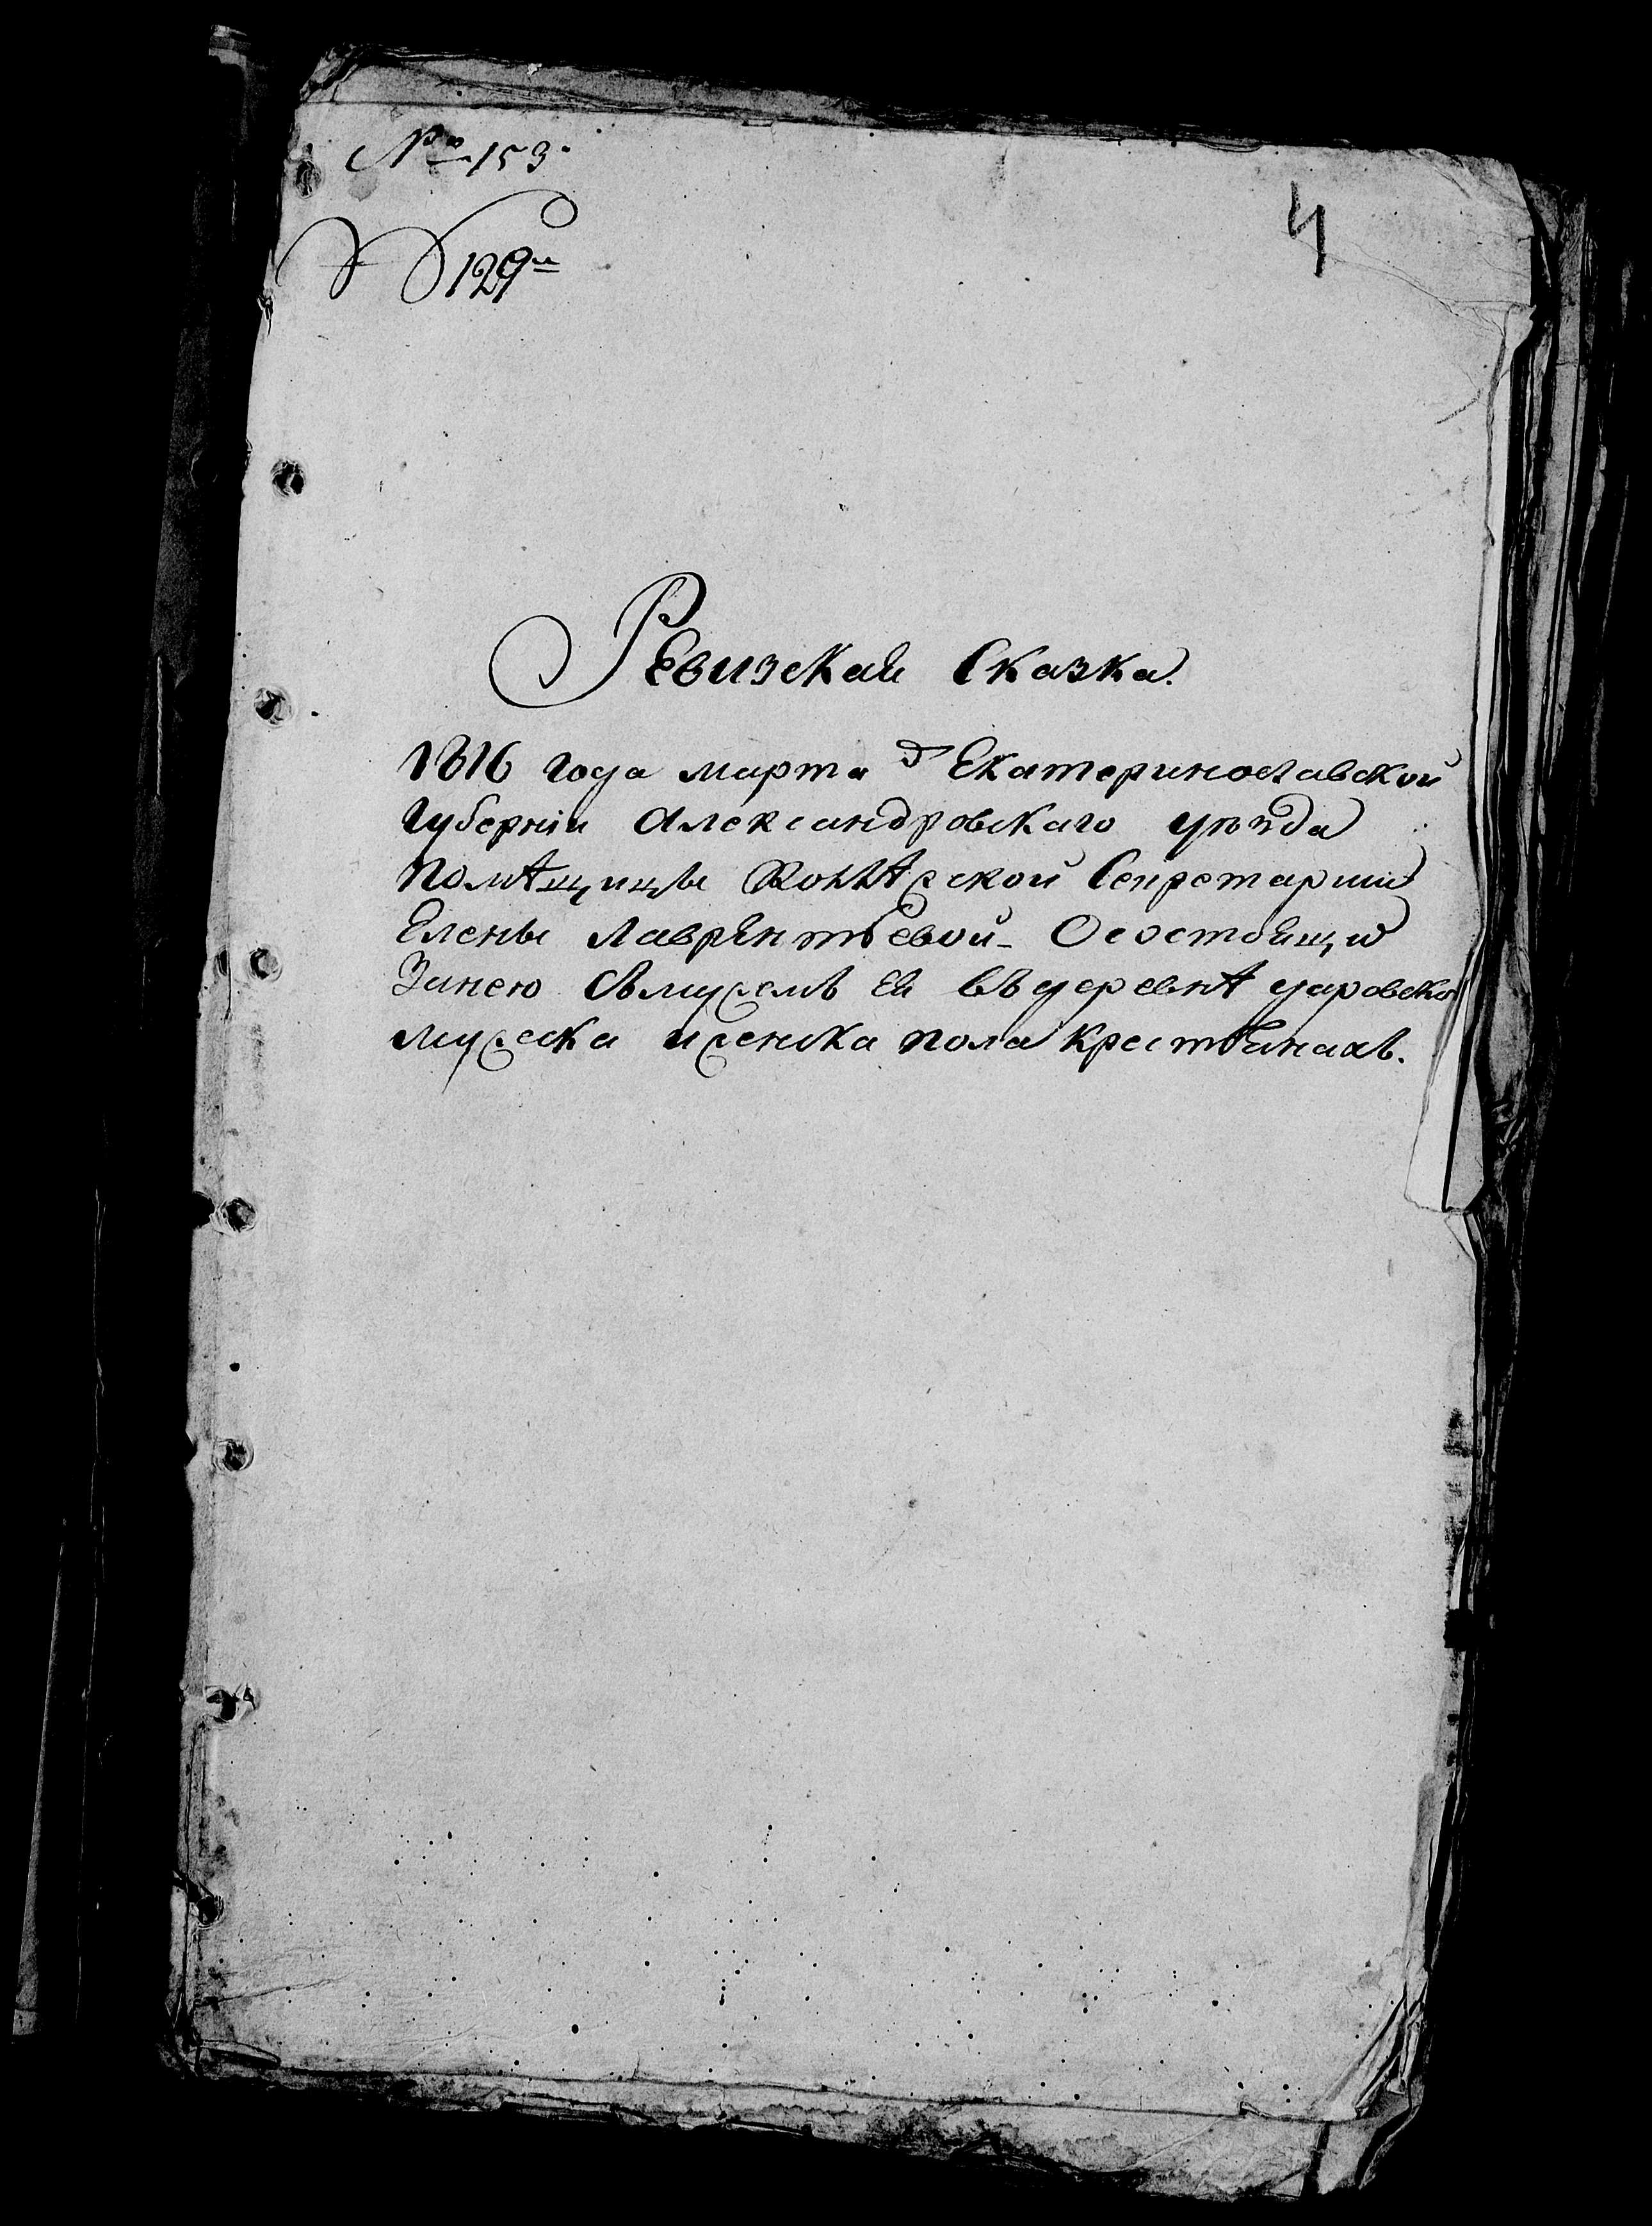 № 153.
№ 129й
4
Ревизская Сказка.
1816 года марта д Екатеринославской
Губернiи Александровскаго уѣзда
помѣщицы Коллѣжской Секретарши
Елены Лаврентьевой. О состоящи
за нею с мужемъ ея въ деревнѣ
мужеска и женска пола крестьянахъ.